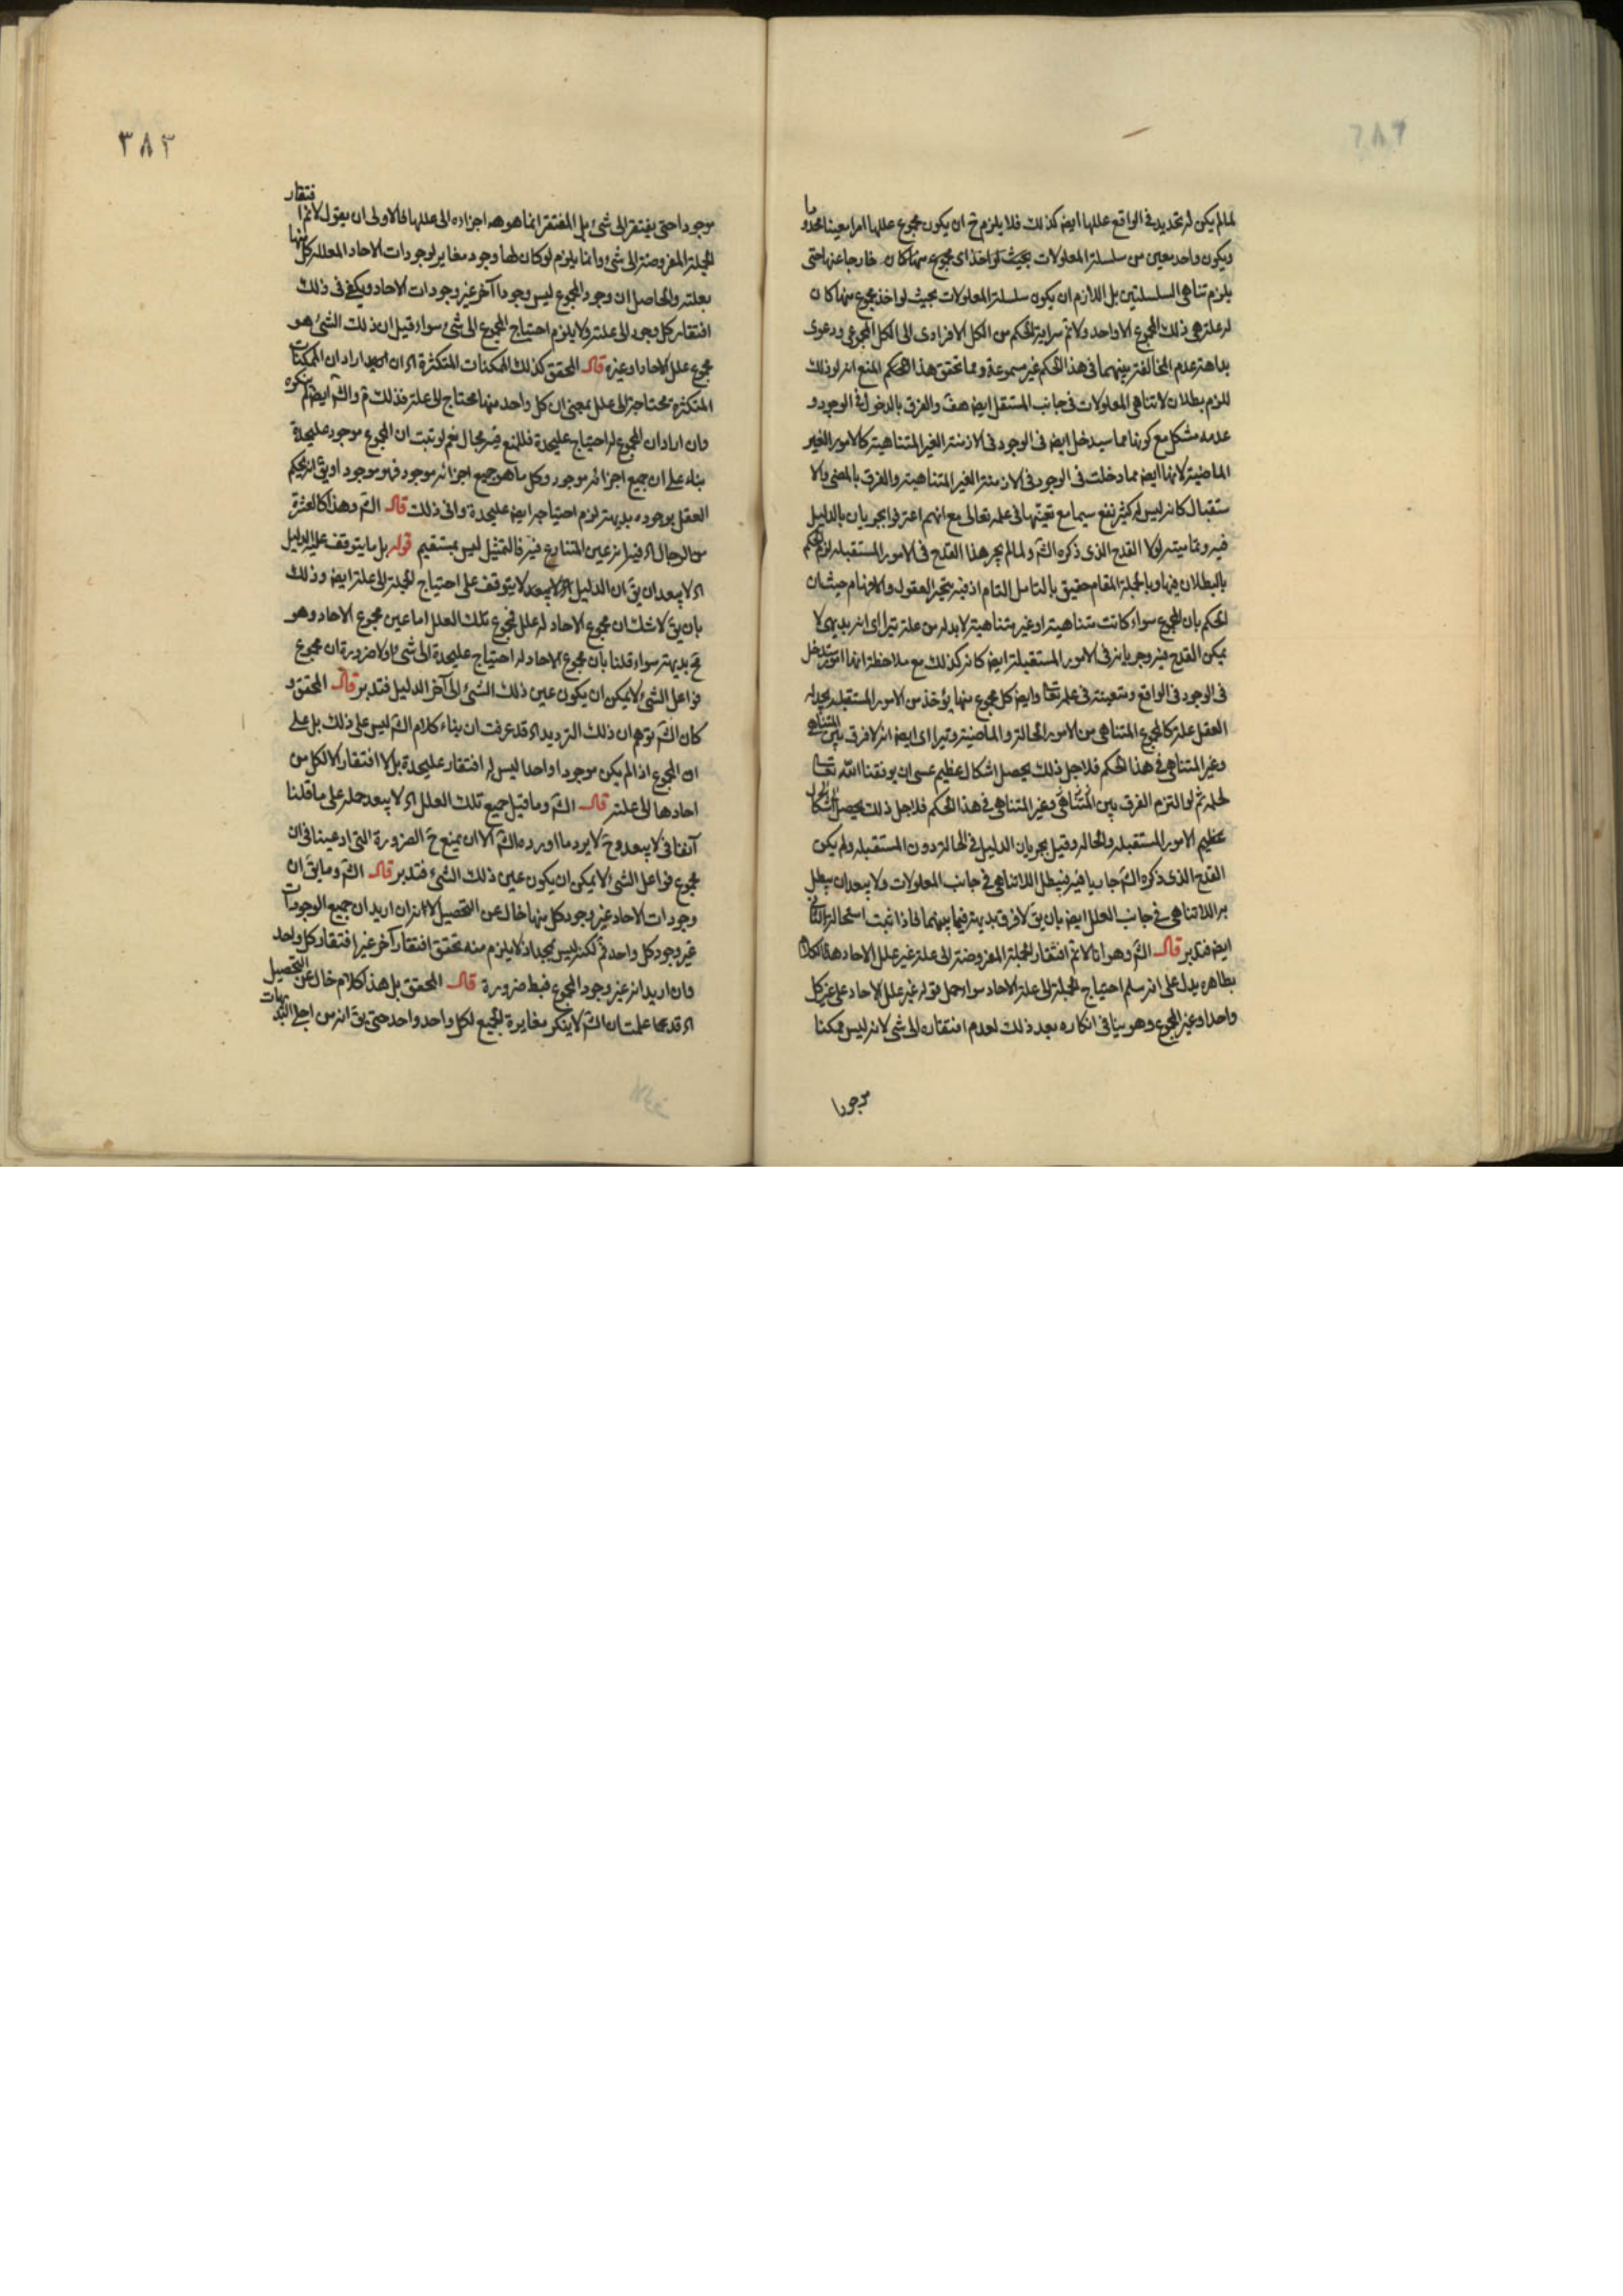 لمالم يكن له تحديد فى الواقع عللها ايضه كذلك فلا يلزم ح ان يكون مجموع عللها امرا معينا محدودا
ويكون واحد معين من سلسلة المعلولات بحيث لو اخذ اى مجموع منها كان خارجا عنها حتى
يلزم تناهى السلسلتين بل اللازم ان يكون سلسلة المعلولات بحيث لو اخذ مجموع منها كان
له علة هى ذلك المجموع الا واحد ولا نم سراية الحكم من الكل الافرادى الى الكل المجموعى ودعوى
بداهة عدم المخالفة بينهما فى هذا الحكم غير مسموعة ومما تحقق هذا الحكم المنع انه لو ذلك
للزم بطلان لا تناهى المعلولات فى جانب المستقبل ايضه هف والفرق بالدخول فى الوجود و
عدمه مشكل مع كونها مما سيدخل ايضه فى الوجود فى الازمنة الغير المتناهية كالامور الغير
الماضية لانها ايضه مما دخلت فى الوجود فى الازمنة الغير المتناهية والفرق بالمضى والا
ستقبال كانه ليس له كثير نفع سيما مع تعينها فى علمه تعالى مع انهم اعترفوا بجريان بالدليل
فيه وتماميته لولا القدح الذى ذكره الش ولما لم يجر هذا القدح فى الامور المستقبلة لزم الحكم
بالبطلان فيها وبالجملة المقام حقيق بالتامل التام اذ فيه يتحير العقول والافهام حيث ان
الحكم بان المجموع سواء كانت متناهية او غير متناهية لا بد له من علة يترا اى انه بديهى لا
يمكن القدح فيه وجريانه فى الامور المستقبلة ايضه كانه كذلك مع ملاحظة انها امور ستدخل
فى الوجود فى الواقع ومتعينة فى علمه تعا وايضه كل مجموع منها يؤخذ من الامور المستقبلة يجد له
العقل علة كالمجموع المتناهى من الامور الحالة والماضية ويترا اى ايضه انه لا فرق بين المتناهى
وغير المتناهى فى هذا الحكم فلاجل ذلك يحصل اشكال عظيم عسى ان يوفقنا الله تعا
لحله ثم لو التزم الفرق بين المتناهى وغير المتناهى فى هذا الحكم فلاجل ذلك يحصل اشكال
عظيم الامور المستقبلة والحالة وقيل بجريان الدليل فى الحالة دون المستقبلة ولم يكن
القدح الذى ذكره الش جاريا فيه فيبطل اللاتناهى فى جانب المعلولات ولا يبعد ان يبطل
به اللاتناهى فى جانب العلل ايضه بان يق لا فرق بديهة فيما بينهما فاذا ثبت استحالة الثانى
ايضه فتدبر قال الش وهو انا لا نم افتقار الجملة المفروضة الى علة غير علل الاحاد هذا الكلام
بظاهره يدل على انه سلم احتياج الجملة الى علة الاحاد سواء حمل قوله غير علل الاحاد على غير كل
واحد او غير المجموع وهو ينافى انكاره بعد ذلك لعدم افتقارن الى شى لانه ليس ممكنا
موجودا
٣٨٣
موجودا حتى يفتقر الى شئ بل المفتقر انما هو هه اجزاءه الى عللها فالاولى ان يقول لا نم افتقار
الجملة المفروضة الى شئ وانما يلزم لو كان لها وجود مغاير لوجودات الاحاد المعللة كل منها
بعلته والحاصل ان وجود المجموع ليس وجودا آخر غير وجودات الاحاد ويكفى فى ذلك
افتقار كل وجود الى علته ولا يلزم احتياج المجموع الى شئ سواء قيل ان ذلك الشئ هو
مجموع علل الاحاد او غيره قال المحقق كذلك الممكنات المتكثرة اه ان اراد ان الممكنات
المتكثرة محتاجة الى علل بمعنى ان كل واحد منها محتاج الى علة فذلك م والش ايضه لم ينكره
وان اراد ان المجموع له احتياج عليحدة فللمنع فيه مجال نعم لو ثبت ان المجموع موجود عليحدة
بناء على ان جميع اجزائه موجود وكل ما هو جميع اجزائه موجود فهو موجود او يق انه يحكم
العقل بوجوده بديهة لزم احتياجه ايضه عليحدة وانى ذلك قال الش وهذا كالعشرة
من الرجال اه فيه انه عين المتنازع فيه فالتمثيل ليس بمستقيم قوله بل ما يتوقف عليه الدليل
اه لا يبعد ان يق ان الدليل لا يتوقف على احتياج الجملة الى علة ايضه وذلك
بان يق لا شك ان مجموع الاحاد له علل فمجموع تلك العلل اما عين مجموع الاحاد وهو
مح بديهة سواء قلنا بان مجموع الاحاد له احتياج عليحدة الى شئ او لا ضرورة ان مجموع
فواعل الشئ لا يمكن ان يكون عين ذلك الشئ الى آخر الدليل فتدبر قال المحقق و
كان الش توهم ان ذلك الترديد اه قد عرفت ان بناء كلام الش ليس على ذلك بل على
ان المجموع اذا لم يكن موجودا واحدا ليس له افتقار عليحدة بل لا افتقار الا لكل من
احادها الى علته قال الش وما قيل جميع تلك العلل اه لا يبعد حمله على ما قلنا
آنفا فى لا يبعد وح لا يرد ما اورده الش الا ان يمنع ح الضرورة التى ادعينا فى ان
مجموع فواعل الشئ لا يمكن ان يكون عين ذلك الشئ فتدبر قال الش وما يق ان
وجودات الاحاد غير وجود كل منها خال عن التحصيل اه انه ان اريد ان جميع الوجودات
غير وجود كل واحد فم لكنه ليس بمجد اذ لا يلزم منه تحقق افتقار آخر غير افتقار كل واحد
وان اريد انه غير وجود المجموع فبط ضرورة قال المحقق بل هذا كلام خال عن التحصيل
اه قد علمت ان الش لا ينكر مغايرة الجميع لكل واحد واحد حتى يق انه من اجلى البديهيات